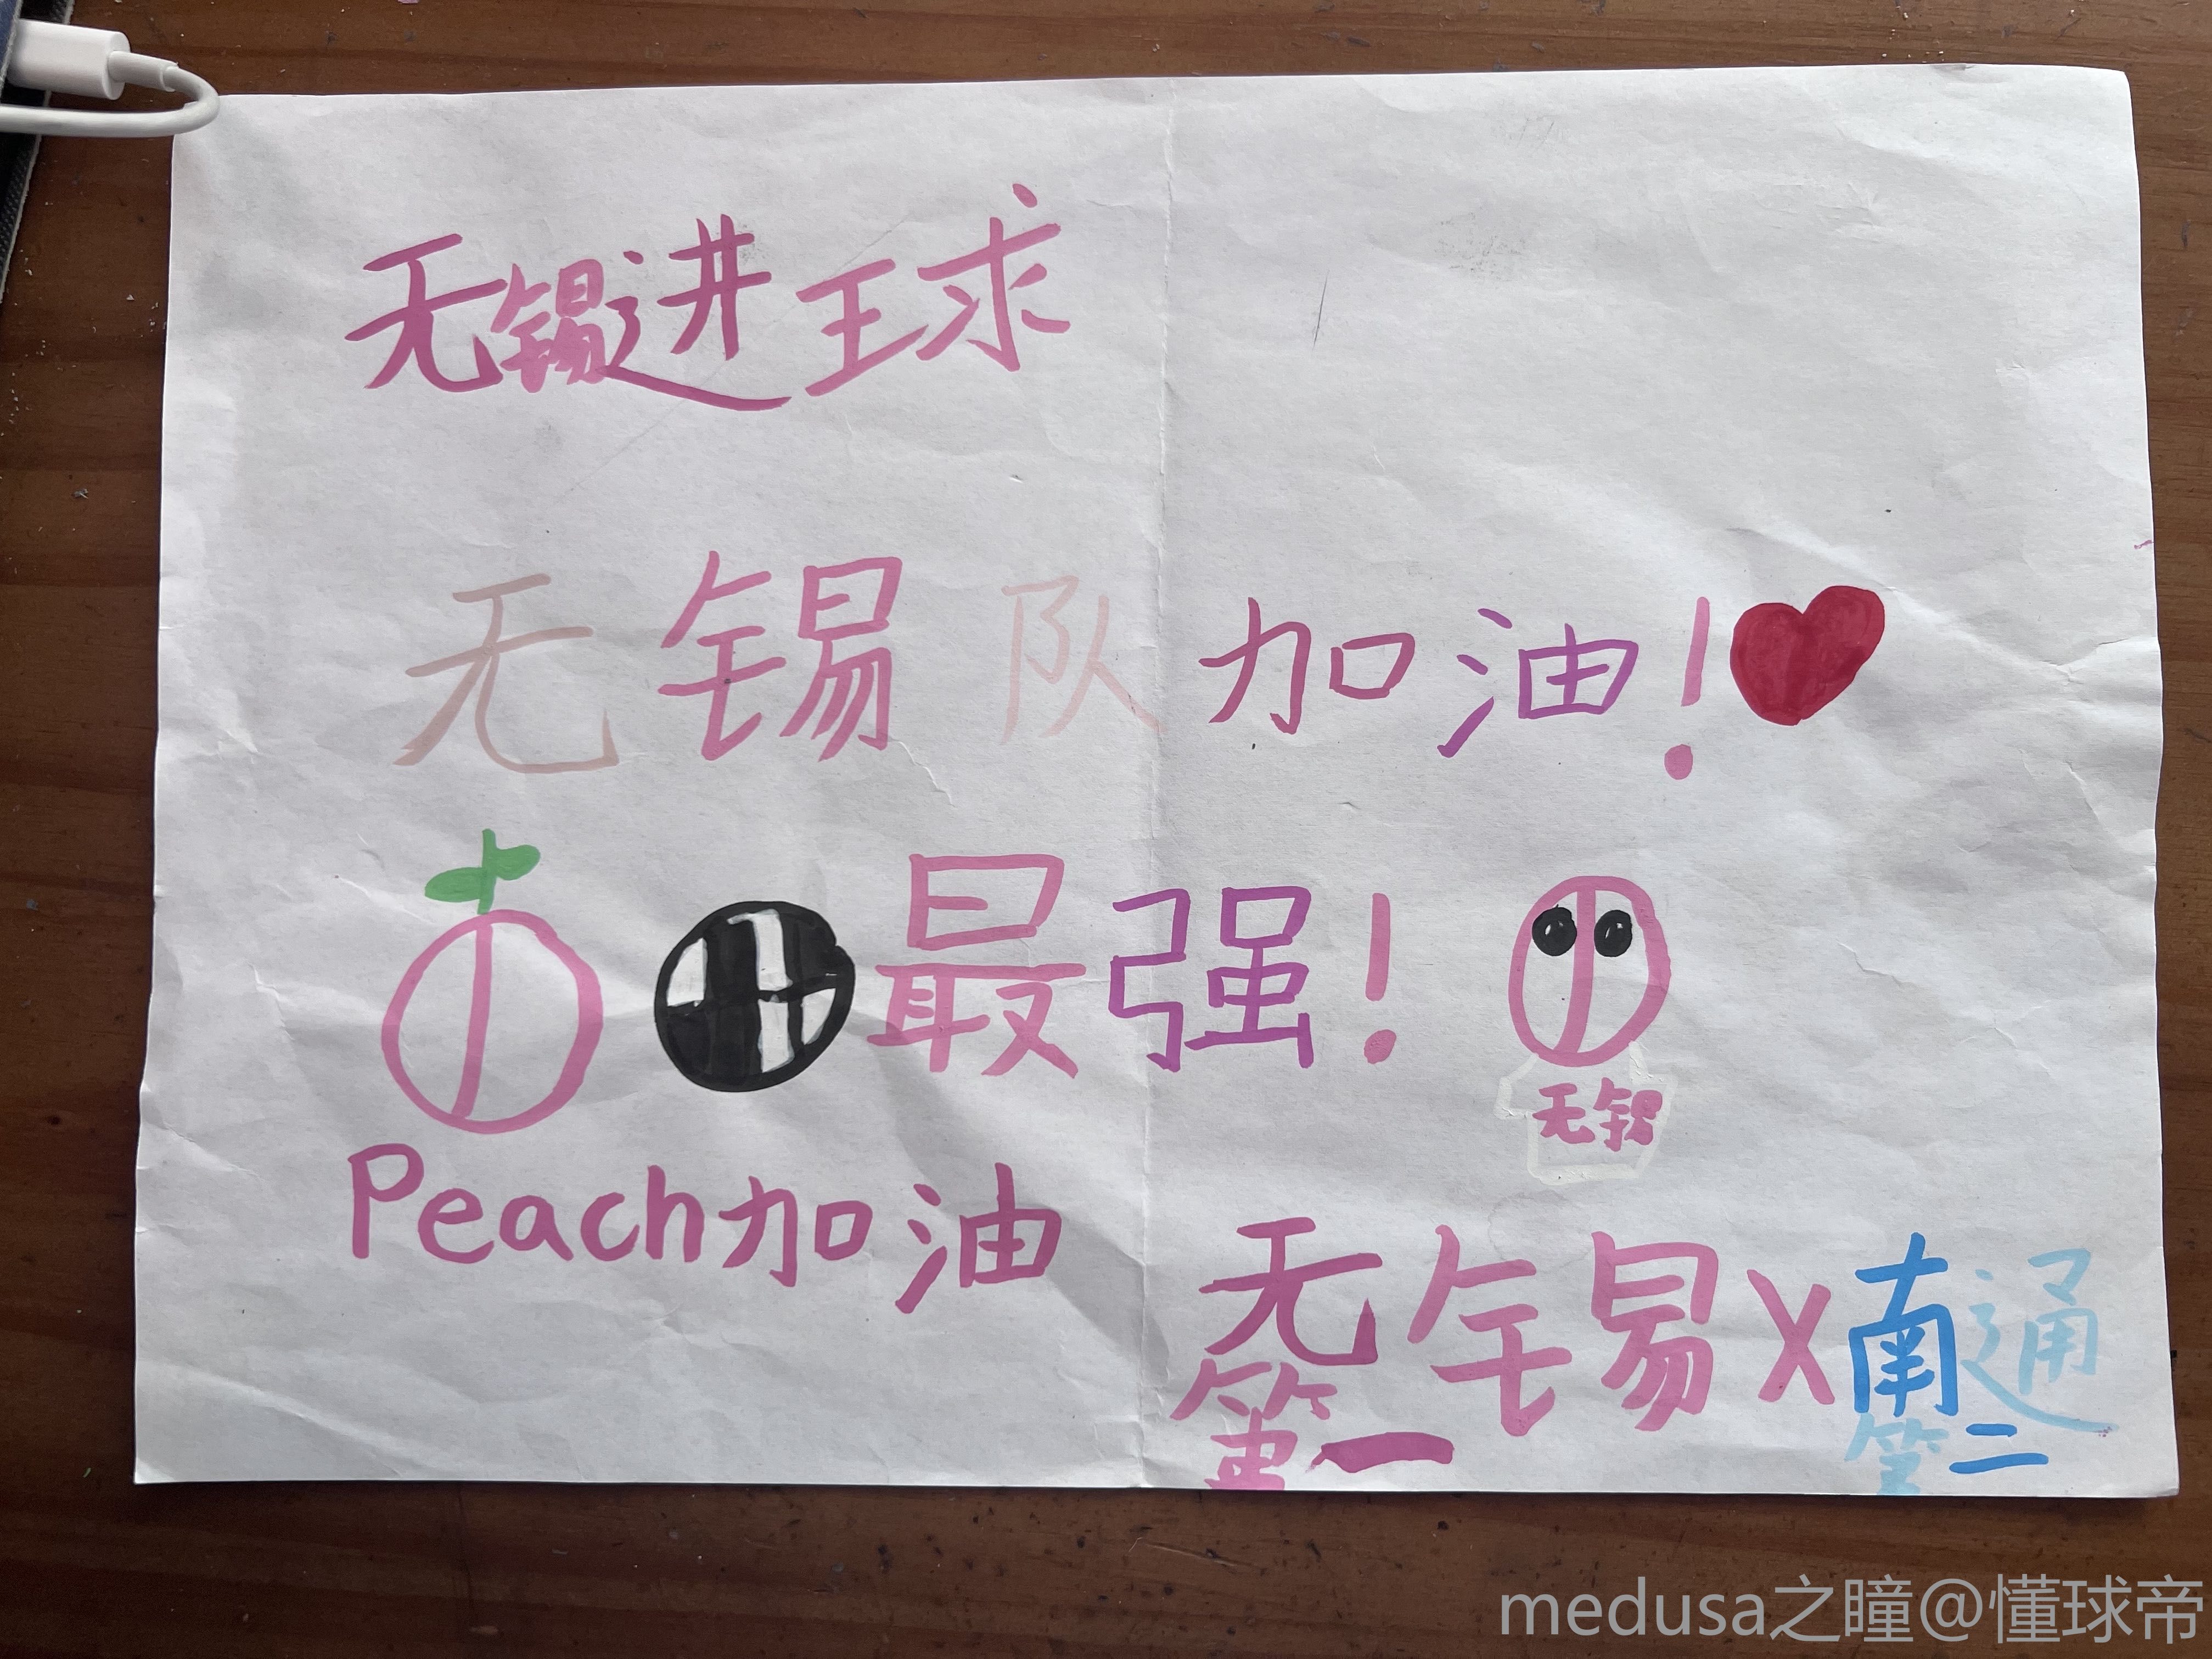 无锡进球
无锡队加油!
最强!
无锡
Peach加油
无锡X南通
第一 第二
medusa之瞳@懂球帝